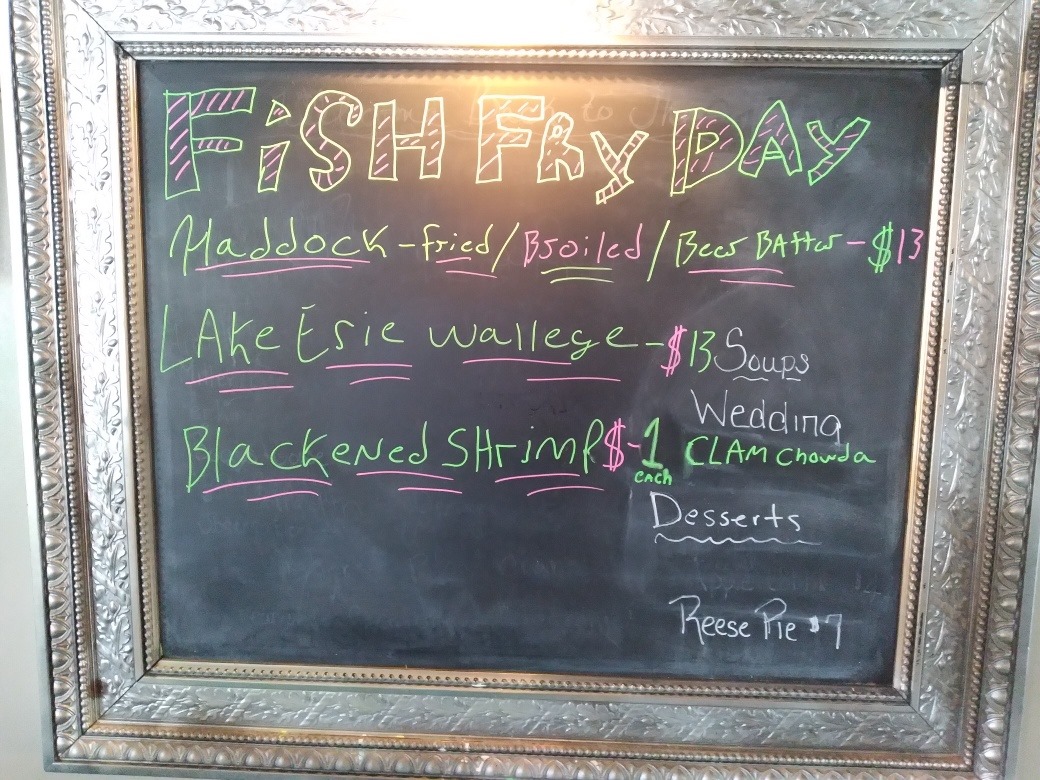 FiSH FRy DAy
Haddock - fried / Broiled / Beer BAtter - $13
LAke Erie wallege - $13
Blackened SHrimP $-1
EACH
Soups
Wedding
CLAM Chowda
Desserts
Reese Pie $7